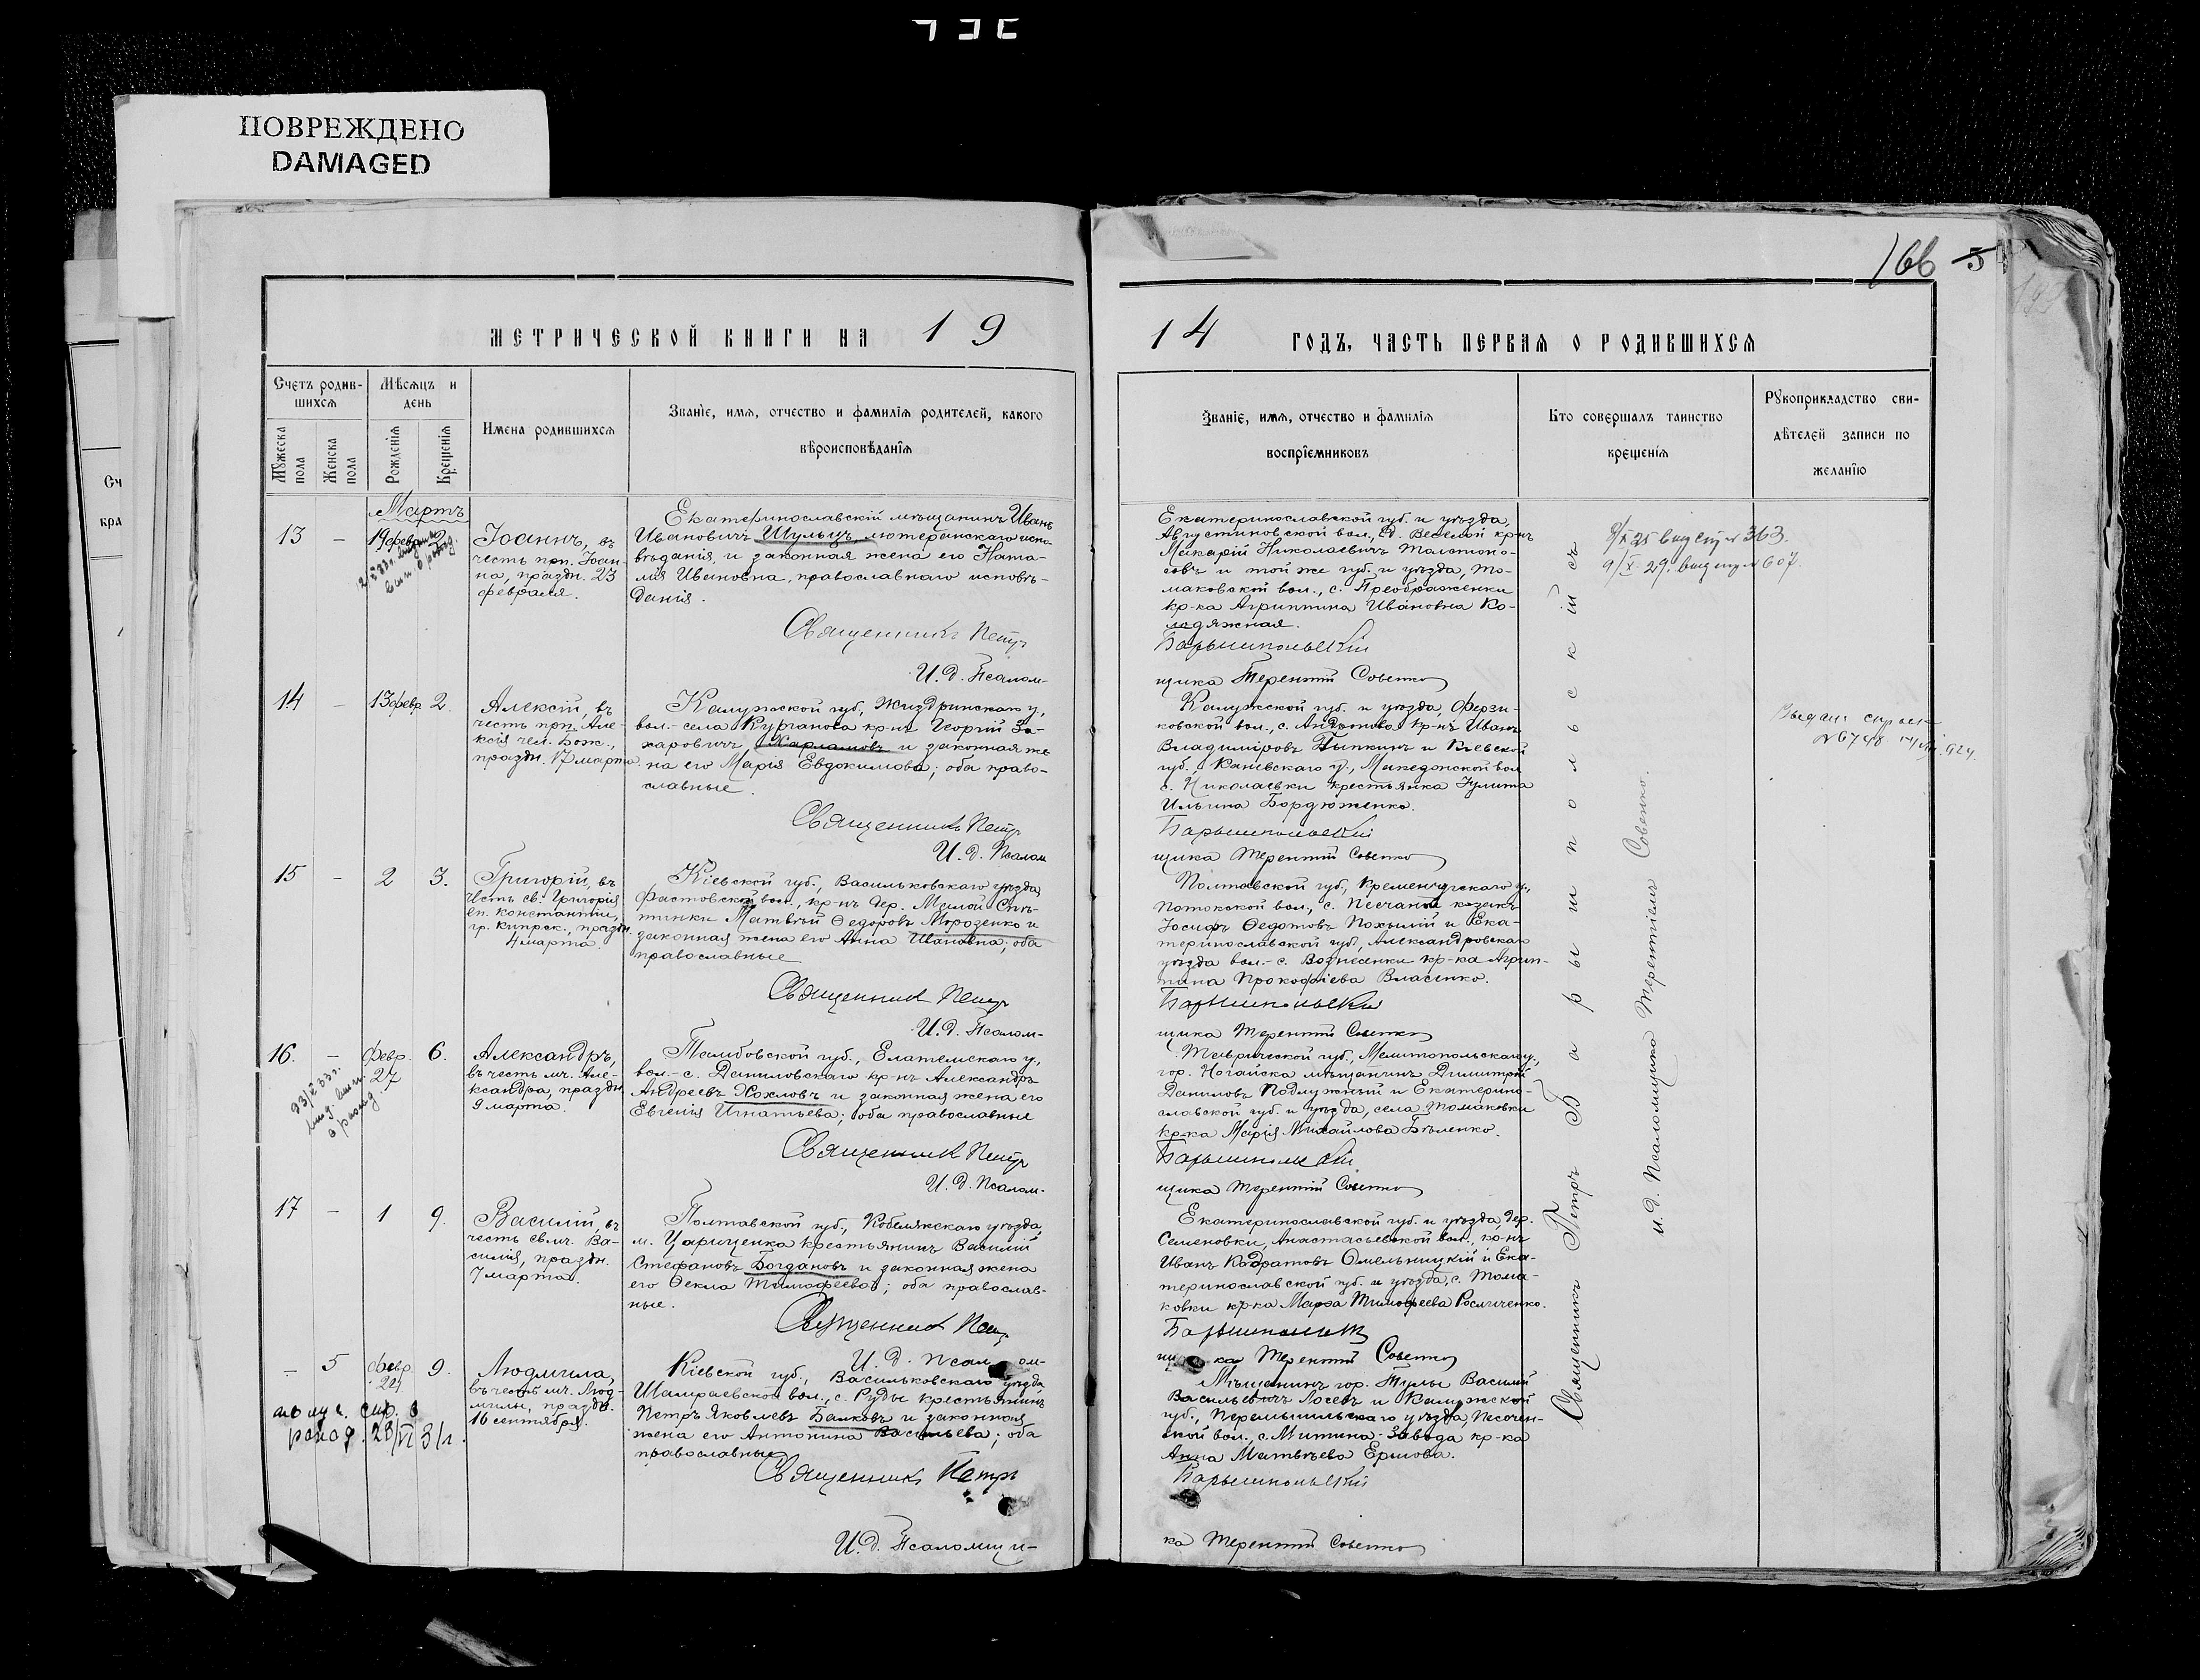 ПОВРЕЖДЕНО
DAMAGED
МЕТРИЧЕСКОЙ КНИГИ НА 19
Счетъ родив-
шихся
Мѣсяцъ и
день
Имена родившихся
Званіе, имя, отчество и фамилія родителей, какого
вѣроисповѣданія
Мужеска
пола
Женска
пола
Рожденія
Крещенія
Мартъ
13 – 19 февр. 2
Іоаннъ, въ
честь прп. Іоан-
на, праздн. 23
февраля.
Екатеринославскій мѣщанинъ Иванъ
Ивановичъ Шульцъ, лютеранскаго испо-
вѣданія, и законная жена его Ната-
лія Ивановна, православнаго исповѣ-
данія.
Священникъ Петръ
И. д. Псалом-
14 – 13 февр. 2.
Алексій, въ
честь прп. Але-
ксія чел. Бож.,
праздн. 17 марта.
Калужской губ., Жиздринскаго у,
вол.- села Курганова кр-нъ Георгій За-
харовичъ Харламовъ и законная же-
на его Марія Евдокимова; оба право-
славные.
Священникъ Петръ
И. д. Псалом
15 – 2 3.
Григорій, въ
честь св. Григорія
еп. Констанціи,
гр. Кипрск., праздн.
4 марта.
Кіевской губ., Васильковскаго уѣзда,
Фастовской вол., кр-нъ дер. Малой Сни-
тинки Матвѣй Ѳедоровъ Морозенко и
законная жена его Анна Ивановна; оба
православные
Священникъ Петръ
И. д. Псалом-
16. – февр. 27 6.
23/V 33 г.
выд. вып.
о рожд.
Александръ,
въ честь мч. Але-
ксандра, праздн.
9 марта.
Тамбовской губ., Елатемскаго у.,
вол.- с. Даниловскаго кр-нъ Александръ
Андреевъ Хохловъ и законная жена его
Евгенія Игнатьева; оба православные
Священникъ Петръ
И. д. Псалом-
17 – 1 9.
Василій, въ
честь свмч. Ва-
силія, праздн.
7 марта.
Полтавской губ., Кобелякскаго уѣзда,
м. Цариченка крестьянинъ Василій
Стефановъ Богдановъ и законная жена
его Ѳекла Тимофеева; оба православ-
ные.
Священникъ Петръ
И. д. Псалом-
– 5 февр. 24 9.
получ. спр. о
рожд. 23/VI 31 г.
Людмила,
въ честь мч. Люд-
милы, праздн.
16 сентября.
Кіевской губ., Васильковскаго уѣзда,
Шамраевской вол., с. Руды крестьянинъ
Петръ Яковлевъ Балковъ и законная
жена его Антонина Васильева; оба
православные
Священникъ Петръ
И. д. Псаломщи-
166 5
14 ГОДЪ, ЧАСТЬ ПЕРВАЯ О РОДИВШИХСЯ
Званіе, имя, отчество и фамилія
воспріемниковъ
Кто совершалъ таинство
крещенія
Рукоприкладство сви-
дѣтелей записи по
желанію
Екатеринославской губ. и уѣзда,
Августиновской вол., д. Веселой кр-нъ
Макарій Николаевичъ
и той же губ. и уѣзда, То-
маковской вол., с. Преображенки
кр-ка Агриппина Ивановна Ко-
лодяжная.
Барышпольскій
щика Терентій Совенко
Калужской губ. и уѣзда, Ферзи-
ковской вол., с. кр-нъ Иванъ
Владиміровъ и Кіевской
губ., Каневскаго у., Македонской вол.
с. Николаевки крестьянка Іулита
Ильина Бордюженко.
Барышпольскій
щика Терентій Совенко
Полтавской губ., Кременчугскаго у.,
Потокской вол., с. Песчаной козакъ
Іосифъ Ѳедотовъ Похылій и Ека-
теринославской губ., Александровскаго
уѣзда вол.- с. Вознесенки кр-ка Агрип-
пина Прокофіева Власенко.
Барышпольскій
щика Терентій Совенко
Таврической губ., Мелитопольскаго у.,
гор. Ногайска мѣщанинъ Димитрій
Даниловъ Подлужный и Екатерино-
славской губ. и уѣзда, села Томаковки
кр-ка Марія Михайлова Бѣленко.
Барышпольскій
щика Терентій Совенко
Екатеринославской губ. и уѣзда, дер.
Семеновки, Анастасьевской вол., кр-нъ
Иванъ Кодратовъ Омельницкій и Ека-
теринославской губ. и уѣзда, с. Тома-
ковки кр-ка Марѳа Тимофеева
Барышпольскій
щика Терентій Совенко
Мѣщанинъ гор. Тулы Василій
Васильевичъ Лосевъ и Калужской
губ., Перемышльскаго уѣзда, Песочен-
ской вол., с. Митина-Завода кр-ка
Анна Матвѣева Ершова.
Барышпольскій
ка Терентій Совенко
Священникъ Петръ Барышпольскій съ
и. д. Псаломщика Терентіемъ Совенко.
363.
607.